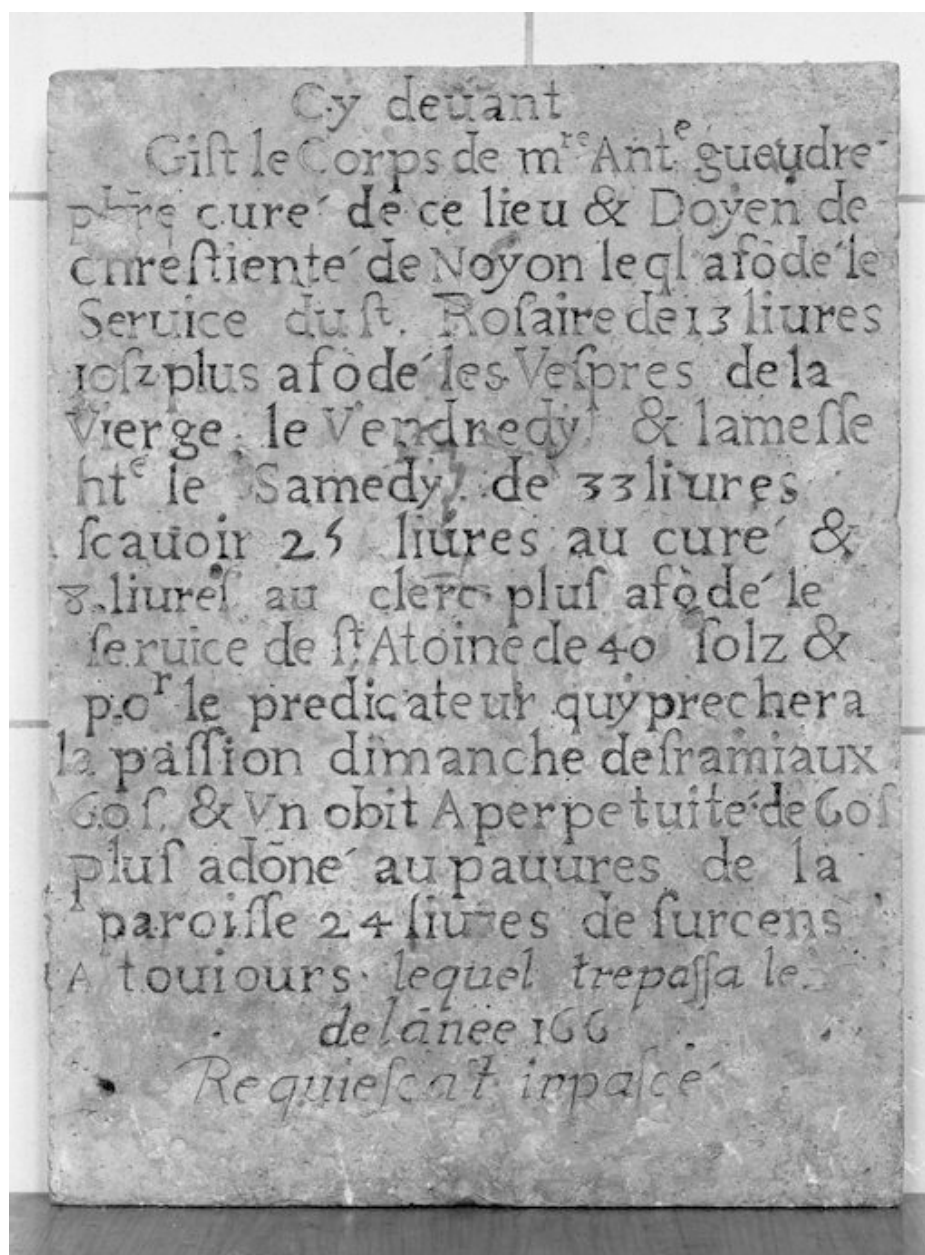 Cy deuant
Giſt le Corps de mʳᵉ Antᵉ gueudré
pb̄re curé de ce lieu & Doyen de
chreſtienté de Noyon leql afõdé le
Seruice du ſt. Roſaire de 13 liures
10ſz plus afõdé les Veſpres de la
Vierge le Vendredy & la meſſe
htᵉ le Samedy de 33 liures
ſcauoir 25 liures au curé &
8 liureſ au clerc pluſ afõdé le
ſeruice de ſt Atoine de 40 ſolz &
poʳ le predicateur quy prechera
la paſſion dimanche deſ ramiaux
60ſ. & Vn obit A perpetuité de 60ſ
pluſ adõné au pauures de la
paroiſſe 24 liures de ſurcens
A touiours lequel trepaſſa le
de lānee 166
Requieſcat in paſcé